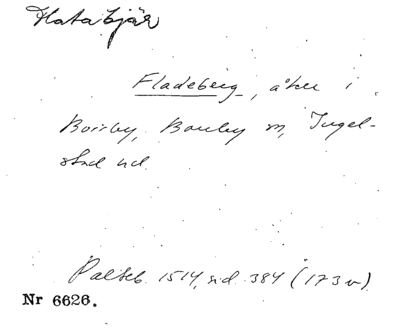 Flatabjär
Fladeberg, åker i
Borrby, Borrby sn, Ingel-
stad hd.
Palteb. 1514, sid. 384 (173 v)
Nr 6626.